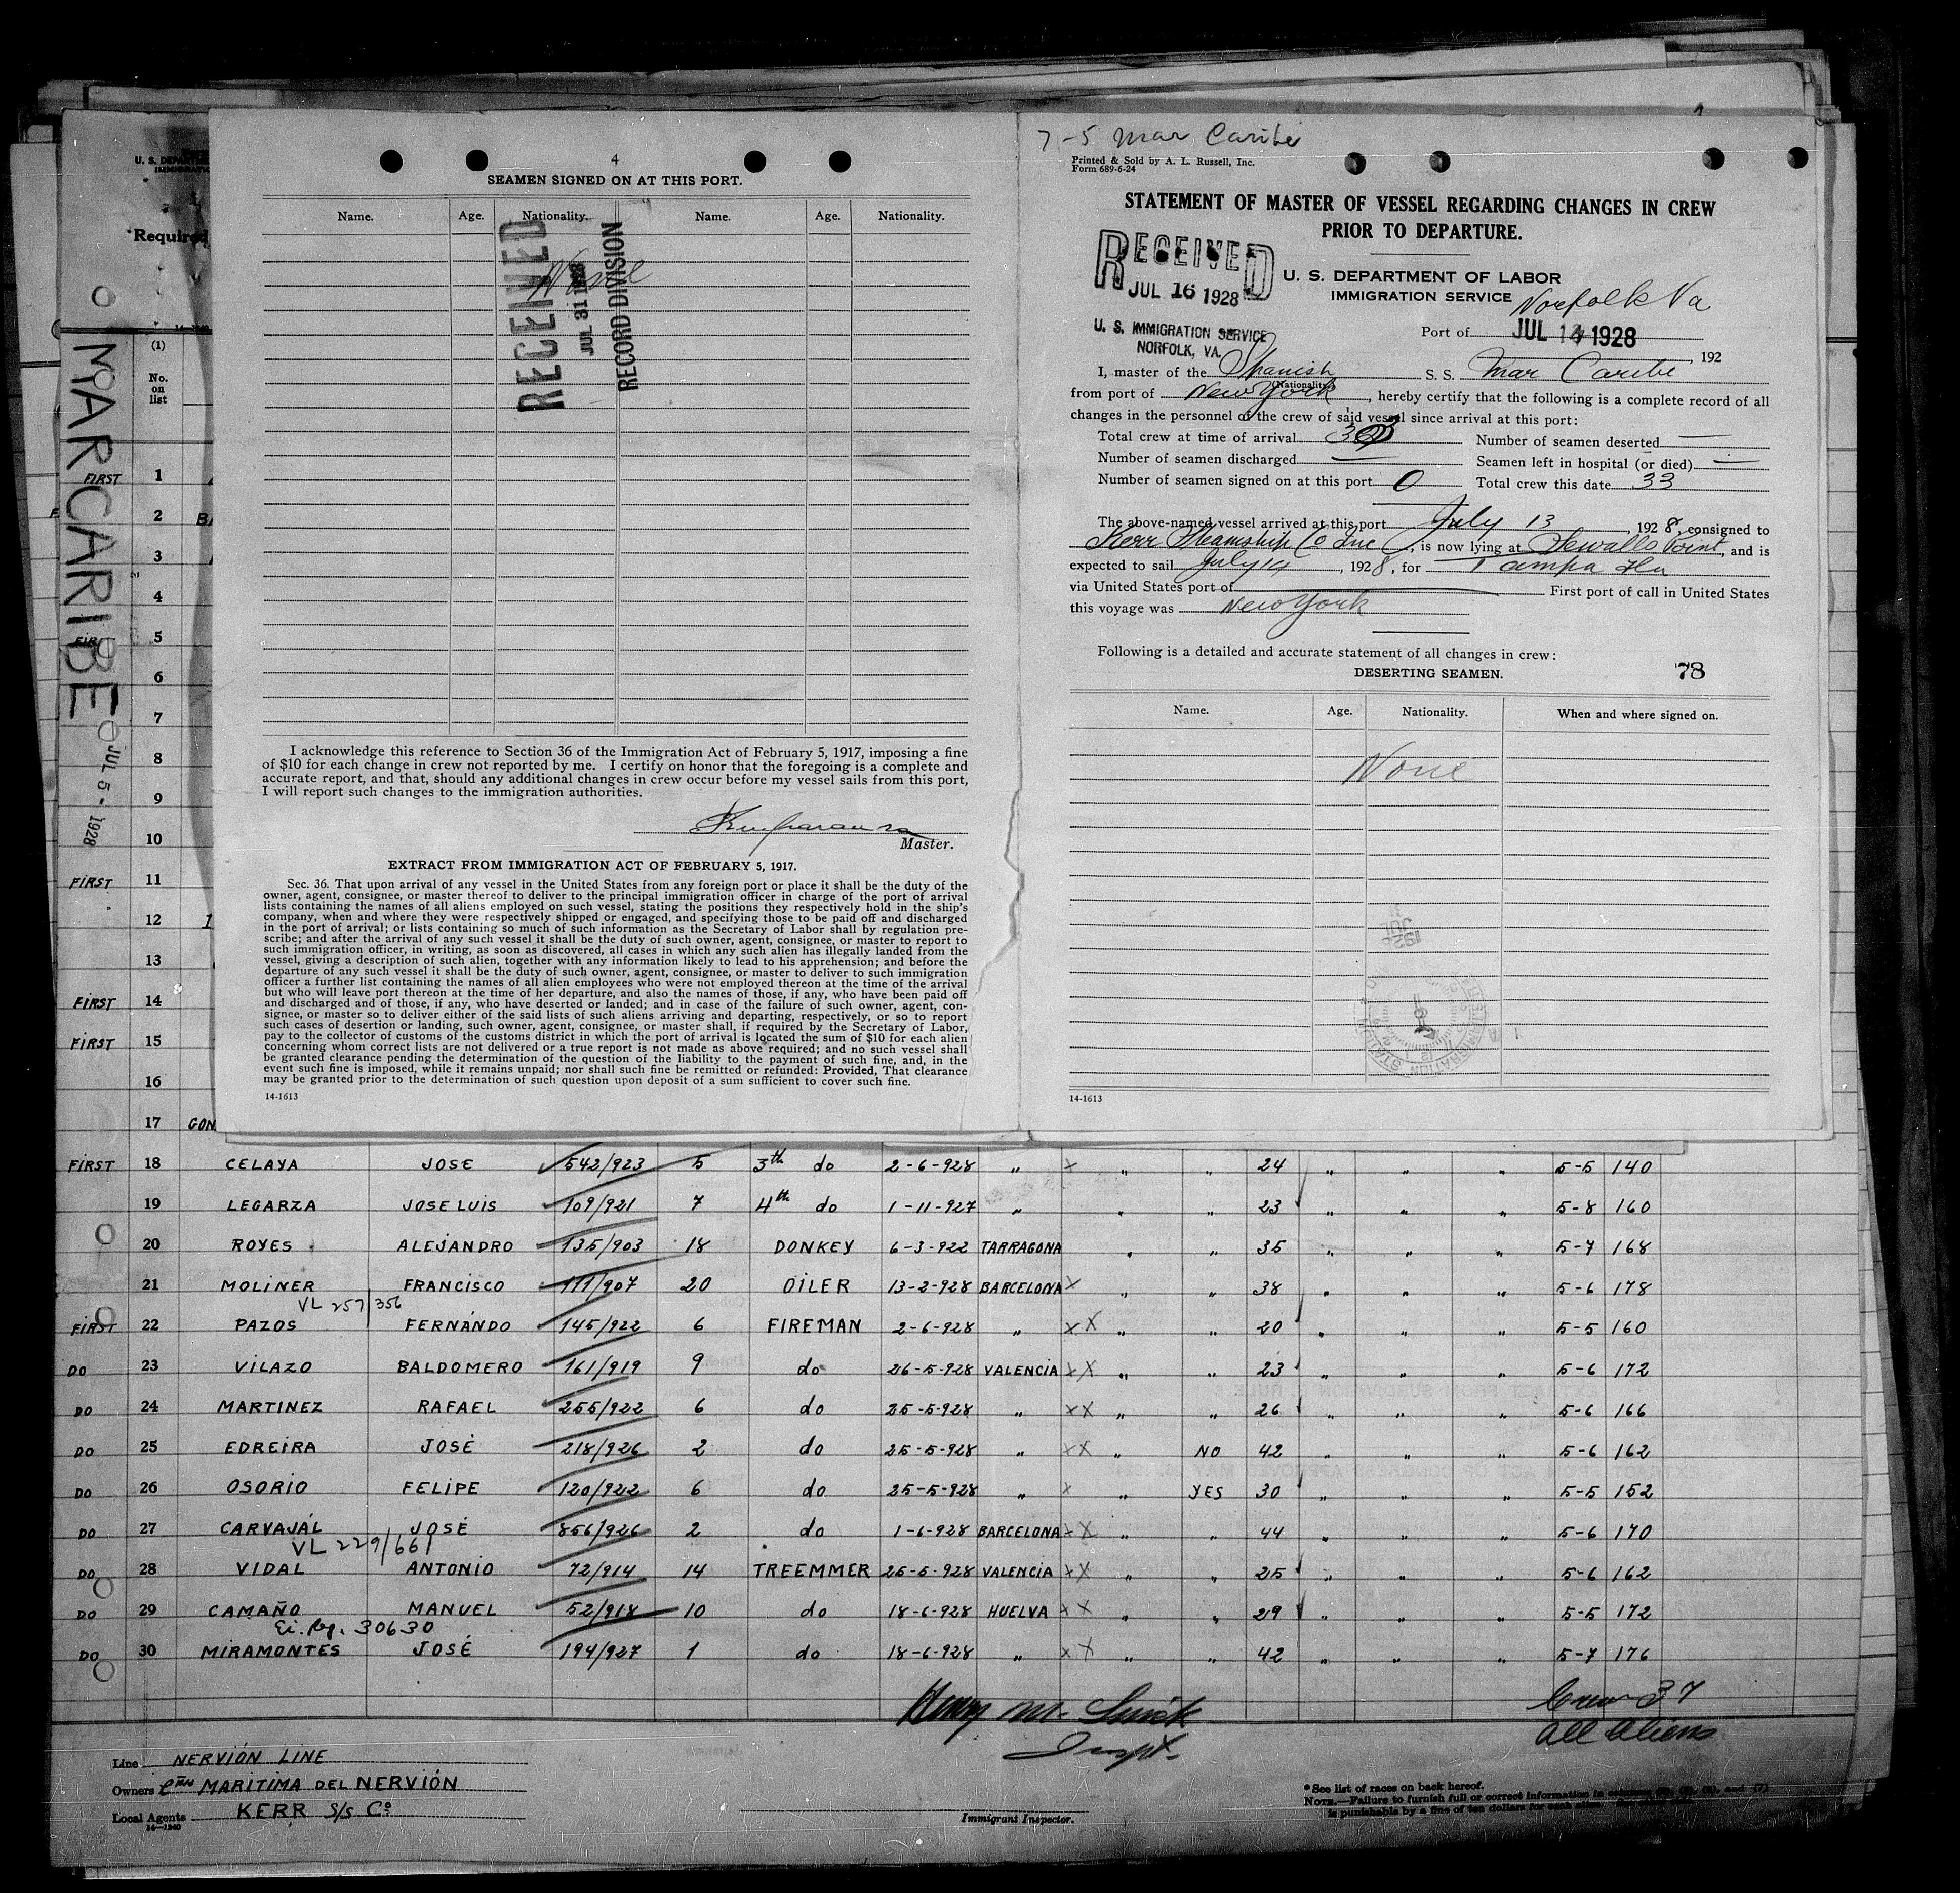 4
SEAMEN SIGNED ON AT THIS PORT.
Name. Age. Nationality. Name. Age. Nationality.
None
RECEIVED
JUL 31 1928
RECORD DIVISION
I acknowledge this reference to Section 36 of the Immigration Act of February 5, 1917, imposing a fine
of $10 for each change in crew not reported by me. I certify on honor that the foregoing is a complete and
accurate report, and that, should any additional changes in crew occur before my vessel sails from this port,
I will report such changes to the immigration authorities.
Master.
EXTRACT FROM IMMIGRATION ACT OF FEBRUARY 5, 1917.
Sec. 36. That upon arrival of any vessel in the United States from any foreign port or place it shall be the duty of the
owner, agent, consignee, or master thereof to deliver to the principal immigration officer in charge of the port of arrival
lists containing the names of all aliens employed on such vessel, stating the positions they respectively hold in the ship's
company, when and where they were respectively shipped or engaged, and specifying those to be paid off and discharged
in the port of arrival; or lists containing so much of such information as the Secretary of Labor shall by regulation pre-
scribe; and after the arrival of any such vessel it shall be the duty of such owner, agent, consignee, or master to report to
such immigration officer, in writing, as soon as discovered, all cases in which any such alien has illegally landed from the
vessel, giving a description of such alien, together with any information likely to lead to his apprehension; and before the
departure of any such vessel it shall be the duty of such owner, agent, consignee, or master to deliver to such immigration
officer a further list containing the names of all alien employees who were not employed thereon at the time of the arrival
but who will leave port thereon at the time of her departure, and also the names of those, if any, who have been paid off
and discharged and of those, if any, who have deserted or landed; and in case of the failure of such owner, agent, con-
signee, or master so to deliver either of the said lists of such aliens arriving and departing, respectively, or so to report
such cases of desertion or landing, such owner, agent, consignee, or master shall, if required by the Secretary of Labor,
pay to the collector of customs of the customs district in which the port of arrival is located the sum of $10 for each alien
concerning whom correct lists are not delivered or a true report is not made as above required; and no such vessel shall
be granted clearance pending the determination of the question of the liability to the payment of such fine, and, in the
event such fine is imposed, while it remains unpaid; nor shall such fine be remitted or refunded: Provided, That clearance
may be granted prior to the determination of such question upon deposit of a sum sufficient to cover such fine.
14-1613
7-5 Mar Caribe
Printed & Sold by A. L. Russell, Inc.
Form 689-6-24
STATEMENT OF MASTER OF VESSEL REGARDING CHANGES IN CREW
PRIOR TO DEPARTURE.
RECEIVED
JUL 16 1928
U. S. IMMIGRATION SERVICE
NORFOLK, VA.
U. S. DEPARTMENT OF LABOR
IMMIGRATION SERVICE
Port of Norfolk Va
JUL 14 1928, 192
I, master of the Spanish (Nationality) S. S. Mar Caribe
from port of New York, hereby certify that the following is a complete record of all
changes in the personnel of the crew of said vessel since arrival at this port:
Total crew at time of arrival 33 Number of seamen deserted —
Number of seamen discharged — Seamen left in hospital (or died) —
Number of seamen signed on at this port 0 Total crew this date 33
The above-named vessel arrived at this port July 13, 1928, consigned to
Kerr Steamship Co Inc, is now lying at Sewalls Point, and is
expected to sail July 14, 1928, for Tampa Fla
via United States port of — First port of call in United States
this voyage was New York
Following is a detailed and accurate statement of all changes in crew:
DESERTING SEAMEN. 78
Name. Age. Nationality. When and where signed on.
None
14-1613
U. S. DEPARTM
Required
MAR CARIBE
JUL 5 - 1928
(1)
No.
on
list
FIRST 1
2
3
4
5
6
7
8
9
10
FIRST 11
12
13
FIRST 14
FIRST 15
16
17 GON
FIRST 18 CELAYA JOSE 542/923 5 3th do 2-6-928 " x " " 24 " " " 5-5 140
19 LEGARZA JOSE LUIS 109/921 7 4th do 1-11-927 " " " 23 " " " 5-8 160
20 ROYES ALEJANDRO 135/903 18 DONKEY 6-3-922 TARRAGONA " " 35 " " " 5-7 168
21 MOLINER FRANCISCO 111/907 20 OILER 13-2-928 BARCELONA x " " 38 " " " 5-6 178
VL 257/356
FIRST 22 PAZOS FERNANDO 145/922 6 FIREMAN 2-6-928 " xx " " 20 " " " 5-5 160
DO 23 VILAZO BALDOMERO 161/919 9 do 26-5-928 VALENCIA xx " " 23 " " " 5-6 172
DO 24 MARTINEZ RAFAEL 255/922 6 do 25-5-928 " xx " " 26 " " " 5-6 166
DO 25 EDREIRA JOSÉ 218/926 2 do 25-5-928 " xx " NO 42 " " " 5-6 162
DO 26 OSORIO FELIPE 120/922 6 do 25-5-928 " x " YES 30 " " " 5-5 152
DO 27 CARVAJÁL JOSÉ 856/926 2 do 1-6-928 BARCELONA xx " " 44 " " " 5-6 170
VL 229/661
DO 28 VIDAL ANTONIO 72/914 14 TREEMMER 25-5-928 VALENCIA xx " " 25 " " " 5-6 162
DO 29 CAMAÑO MANUEL 52/918 10 do 18-6-928 HUELVA xx " " 29 " " " 5-5 172
Ei. Reg. 30630
DO 30 MIRAMONTES JOSÉ 194/927 1 do 18-6-928 " xx " " 42 " " " 5-7 176
Henry M. Smith
Inspt.
Crew 37
all aliens
Line NERVIÓN LINE
Owners Cñia MARITIMA DEL NERVIÓN
Local Agents KERR S/S Co
14-1240
Immigrant Inspector.
*See list of races on back hereof.
NOTE.—Failure to furnish full or correct information in columns
is punishable by a fine of ten dollars for each alien.